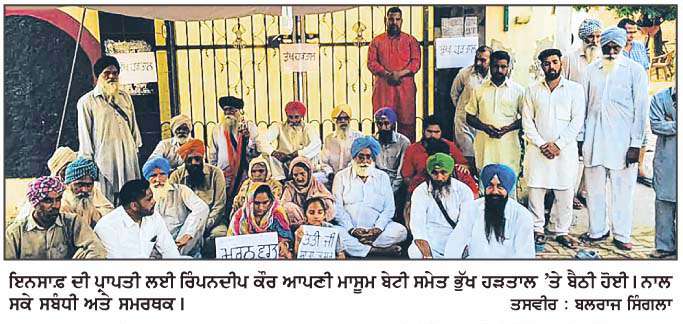 ਭੁੱਖ ਹੜਤਾਲ
ਭੁੱਖ ਹੜਤਾਲ
ਭੁੱਖ ਹੜਤਾਲ
ਇਨਸਾਫ਼ ਦੀ ਪ੍ਰਾਪਤੀ ਲਈ ਰਿੰਪਨਦੀਪ ਕੌਰ ਆਪਣੀ ਮਾਸੂਮ ਬੇਟੀ ਸਮੇਤ ਭੁੱਖ ਹੜਤਾਲ 'ਤੇ ਬੈਠੀ ਹੋਈ। ਨਾਲ
ਸਕੇ ਸਬੰਧੀ ਅਤੇ ਸਮਰਥਕ। ਤਸਵੀਰ : ਬਲਰਾਜ ਸਿੰਗਲਾ